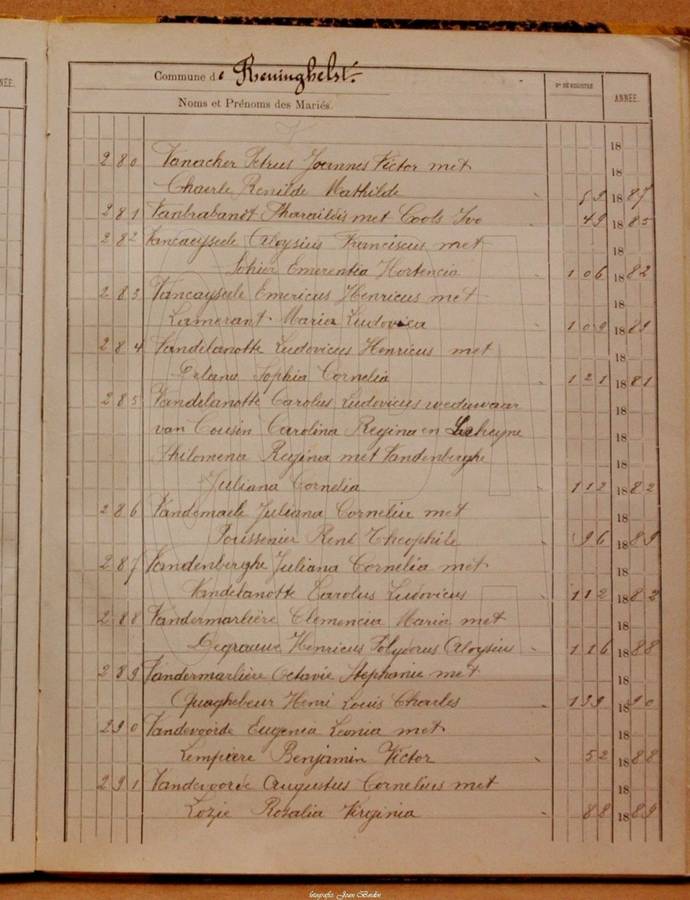 NÉE.
Commune de Reninghelst.
Noms et Prénoms des Mariés.
Nº DE REGISTRE
ANNÉE.
V
18
280 Vanacker Petrus Joannes Victor met 18
Chaerle Renilde Mathilde 59 1887
281 Vanbrabandt Pharaïlde met Cools Ivo 49 1885
282 Vancayseele Aloysius Franciscus met 18
Sohier Emerentia Hortencia 106 1882
283 Vancayseele Emericus Henricus met 18
Lamerant Maria Ludovica 109 1889
284 Vandelanotte Ludovicus Henricus met 18
Sophia Cornelia 121 1881
285 Vandelanotte Carolus Ludovicus weduwaar 18
van Cousin Carolina Regina en 18
Philomena Regina met Vandenberghe 18
Juliana Cornelia 112 1882
286 Vandemaele Juliana Cornelie met 18
René Theophile 96 1889
287 Vandenberghe Juliana Cornelia met 18
Vandelanotte Carolus Ludovicus 112 1882
288 Vandermarlière Clemencia Maria met 18
Degraeuwe Henricus Polydorus Aloysius 116 1888
289 Vandermarlière Octavie Stephanie met 18
Quaghebeur Henri Louis Charles 139 1890
290 Vandevoorde Eugenia Leonia met 18
Lempiere Benjamin Victor 52 1888
291 Vandevoorde Augustus Cornelius met 18
Lozie Rosalia Virginia 88 1889
fotografie Joan Bordon